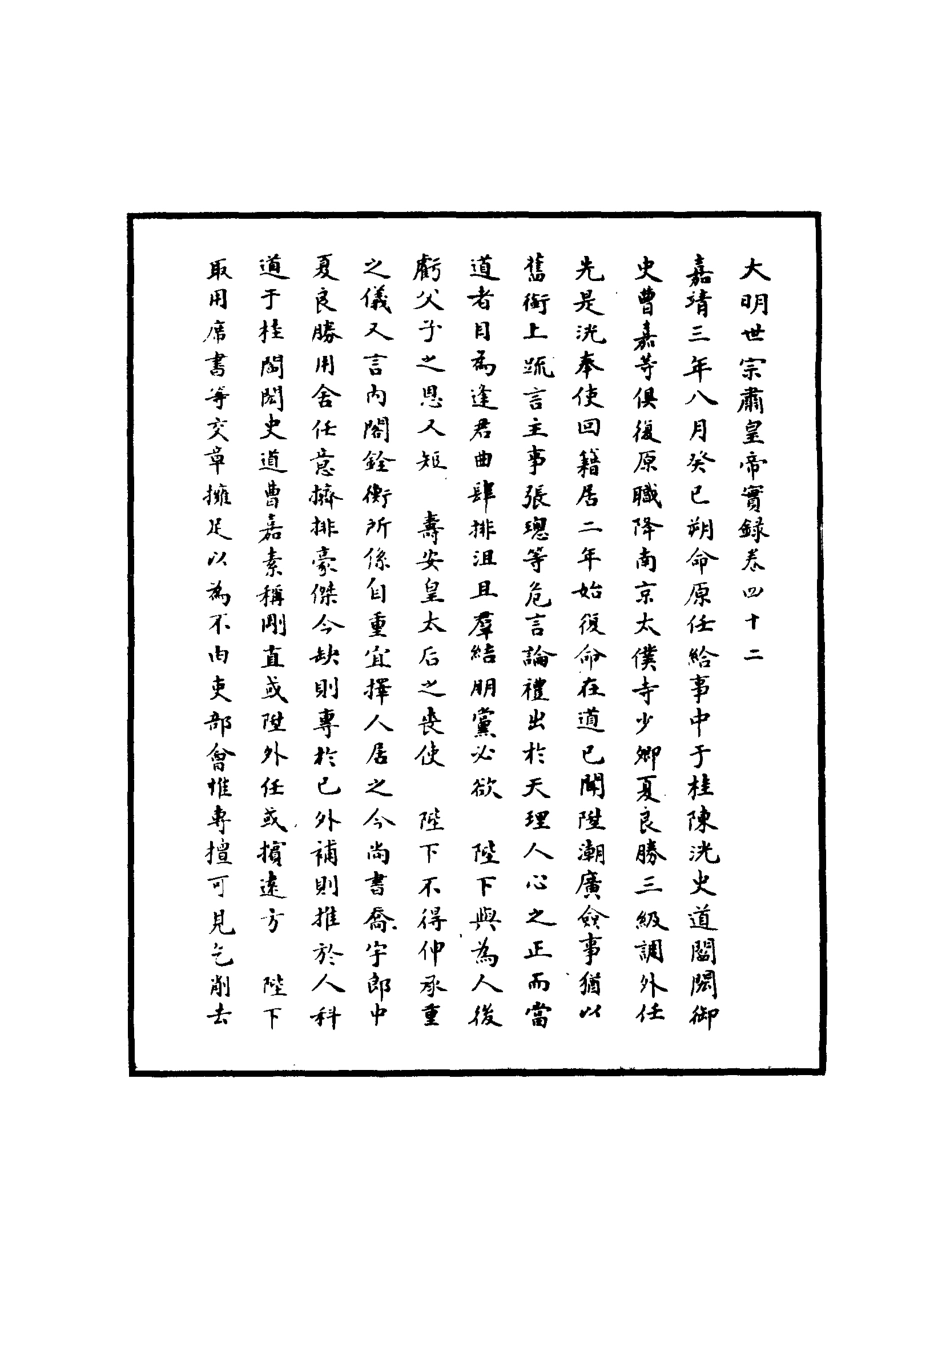 大明世宗肅皇帝實録卷四十二
嘉靖三年八月癸巳朔命原任給事中于桂陳洸史道閻閎御
史曹嘉等俱復原職降南京太僕寺少卿夏良勝三級調外任
先是洸奉使回籍居二年始復命在道已聞陞湖廣僉事猶以
舊銜上疏言主事張璁等危言論禮出於天理人心之正而當
道者目為逢君曲肆排沮且羣結朋黨必欲 陛下與為人後
虧父子之恩又短 壽安皇太后之喪使 陛下不得伸承重
之儀又言内閣銓衡所係自重宜擇人居之今尚書喬宇郎中
夏良勝用舍任意擠排豪傑今缺則專於己外補則推於人科
道于桂閻閎史道曹嘉素稱剛直或陞外任或擯遠方 陛下
取用席書等交章擁足以為不由吏部會推專擅可見乞削去